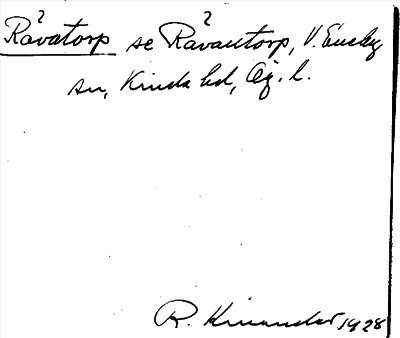 ?
?
Råvatorp se Råvantorp, V. Eneby
sn, Kinda hd, Ög. l.
R. Kinander 1928